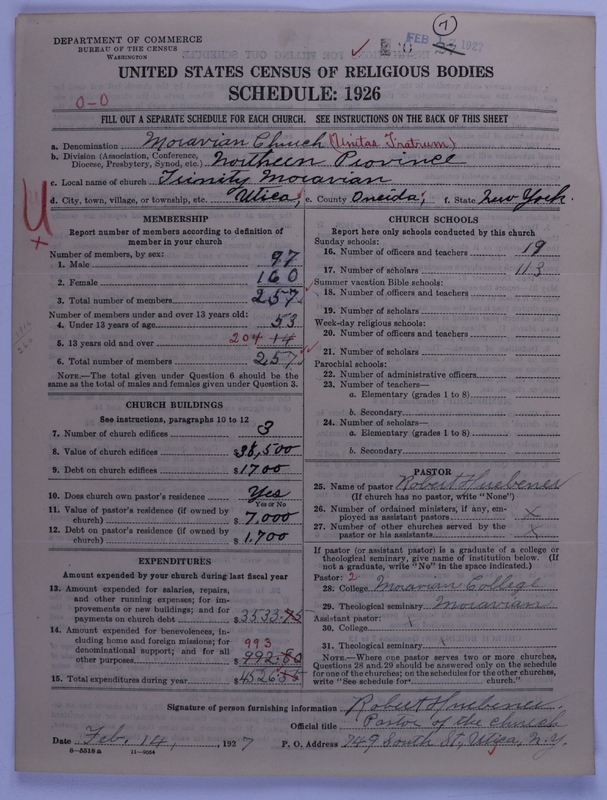 (7)
DEPARTMENT OF COMMERCE
BUREAU OF THE CENSUS
WASHINGTON
FEB 1927
UNITED STATES CENSUS OF RELIGIOUS BODIES
SCHEDULE: 1926
0-0
FILL OUT A SEPARATE SCHEDULE FOR EACH CHURCH. SEE INSTRUCTIONS ON THE BACK OF THIS SHEET
a. Denomination Moravian Church (Unitas Fratrum)
b. Division (Association, Conference, Diocese, Presbytery, Synod, etc.) Northern Province
c. Local name of church Trinity Moravian
d. City, town, village, or township, etc. Utica; e. County Oneida; f. State New York.
MEMBERSHIP
Report number of members according to definition of
member in your church
Number of members, by sex:
1. Male 97
2. Female 160
3. Total number of members 257
Number of members under and over 13 years old:
4. Under 13 years of age 53
5. 13 years old and over 204 14
6. Total number of members 257
NOTE.—The total given under Question 6 should be the
same as the total of males and females given under Question 3.
CHURCH BUILDINGS
See instructions, paragraphs 10 to 12
7. Number of church edifices 3
8. Value of church edifices $38,500
9. Debt on church edifices $1700
10. Does church own pastor's residence? Yes
Yes or No
11. Value of pastor's residence (if owned by
church) $7,000
12. Debt on pastor's residence (if owned by
church) $1,700
EXPENDITURES
Amount expended by your church during last fiscal year
13. Amount expended for salaries, repairs,
and other running expenses; for im-
provements or new buildings; and for
payments on church debt $3533.75
14. Amount expended for benevolences, in-
cluding home and foreign missions; for
denominational support; and for all
other purposes 993 $992.80
15. Total expenditures during year $4526.55
CHURCH SCHOOLS
Report here only schools conducted by this church
Sunday schools:
16. Number of officers and teachers 19
17. Number of scholars 113
Summer vacation Bible schools:
18. Number of officers and teachers
19. Number of scholars
Week-day religious schools:
20. Number of officers and teachers
21. Number of scholars
Parochial schools:
22. Number of administrative officers
23. Number of teachers—
a. Elementary (grades 1 to 8)
b. Secondary
24. Number of scholars—
a. Elementary (grades 1 to 8)
b. Secondary
PASTOR
25. Name of pastor Robert Huebener
(If church has no pastor, write "None")
26. Number of ordained ministers, if any, em-
ployed as assistant pastors x
27. Number of other churches served by the
pastor or his assistants x
If pastor (or assistant pastor) is a graduate of a college or
theological seminary, give name of institution below. (If
not a graduate, write "No" in the space indicated.)
Pastor: 2
28. College Moravian College
29. Theological seminary Moravian
Assistant pastor:
30. College
31. Theological seminary
NOTE.—Where one pastor serves two or more churches,
Questions 28 and 29 should be answered only on the schedule
for one of the churches; on the schedules for the other churches,
write "See schedule for church."
Signature of person furnishing information Robert Huebener.
Official title Pastor of the church
Date Feb. 14, 1927 P. O. Address 749 South St., Utica, N.Y.
8—5518 a 11—9054